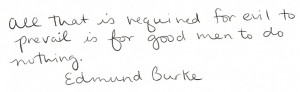 all that is required for evil to
prevail is for good men to do
nothing.
Edmund Burke